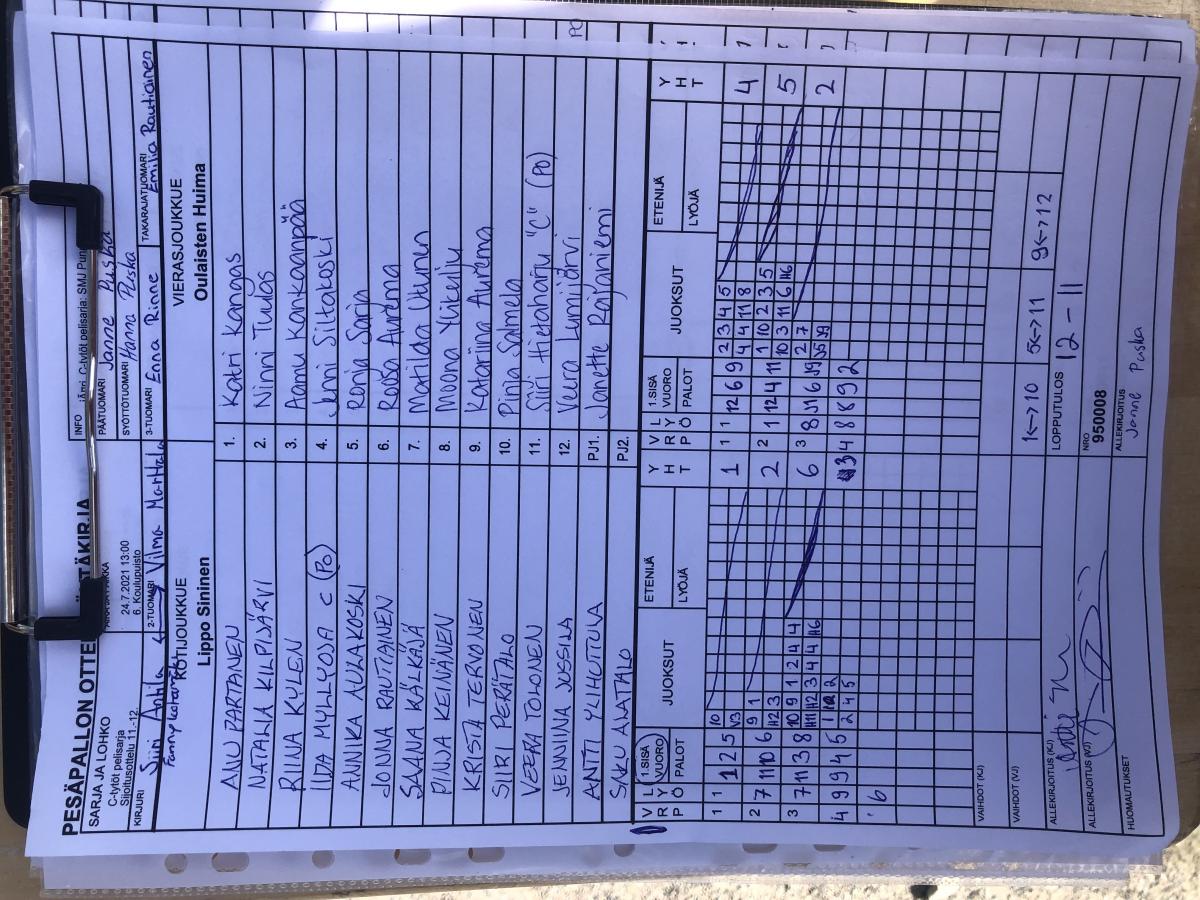 PESÄPALLON OTTE TÄKIRJA
SARJA JA LOHKO
C-tytöt pelisarja
Sijoitusottelu 11.-12.
24.7.2021 13:00
6. Koulupuisto
INFO
PÄÄTUOMARI Janne Puska
SYÖTTÖTUOMARI Hanna Puska
KIRJURI Siiri Anttila
2-TUOMARI Vilma Marttala
3-TUOMARI Enna Rinne
TAKARAJATUOMARI Emilia Rautiainen
KOTIJOUKKUE
Lippo Sininen
VIERASJOUKKUE
Oulaisten Huima
ANU PARTANEN 1. Katri Kangas
NATALIA KILPIJÄRVI 2. Ninni Tuulos
RIINA KYLEN 3. Aamu Kankaanpää
IIDA MYLLYOJA C (PO) 4. Jenni Siltakoski
ANNIKA AULAKOSKI 5. Ronja Sarja
JONNA RAUTIAINEN 6. Roosa Aurema
SAANA KÄLKÄJÄ 7. Matilda Utunen
PINJA KEINÄNEN 8. Moona Ylikelju
KRISTA TERVONEN 9. Katariina Aurema
SIIRI PERÄTALO 10. Pinja Salmela
VEERA TOLONEN 11. Siiri Hietaharju "C" (PO)
JENNIINA JUSSILA 12. Veera Lumijärvi
ANTTI YLIHUTTULA PJ1. Janette Raijaniemi
SAKU ALATALO PJ2.
V R L Y P Ö 1.SISÄ VUORO PALOT JUOKSUT ETENIJÄ LYÖJÄ Y H T
V R L Y P Ö 1.SISÄ VUORO PALOT JUOKSUT ETENIJÄ LYÖJÄ Y H T
1 1 1 2 5 10 V3 1
1 1 12 6 9 2 3 4 5 4 4 11 8 4
2 7 11 10 6 9 1 H2 3 2
2 1 12 4 11 1 10 2 3 5 10 3 11 6 H6 5
3 7 11 3 8 10 9 1 2 4 4 H11 H2 3 4 4 H6 6
3 8 J1 6 J9 2 7 J5 J9 2
4 9 9 4 5 1 12 2 2 4 5 3
4 8 8 9 2
6
VAIHDOT (KJ)
VAIHDOT (VJ)
1<->10 5<->11 9<->12
ALLEKIRJOITUS (KJ)
LOPPUTULOS 12 - 11
ALLEKIRJOITUS (VJ)
NRO
950008
HUOMAUTUKSET
ALLEKIRJOITUS
Janne Puska